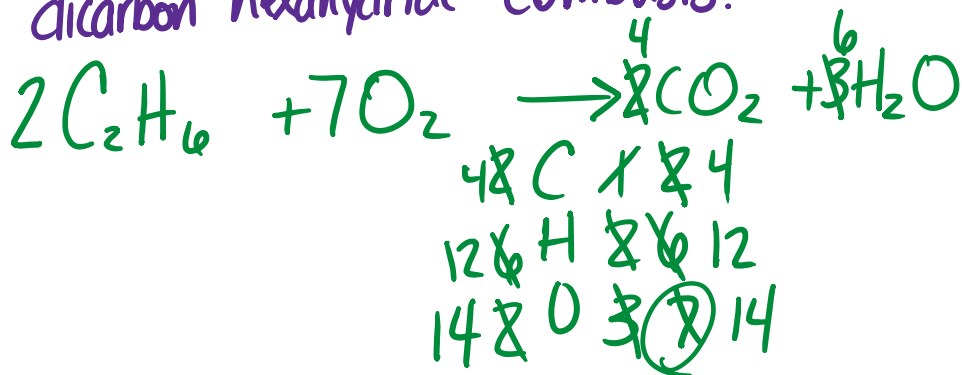 dicarbon hexahydride combusts.
4 6
2C₂H₆ + 7O₂ → 2CO₂ + 3H₂O
4 2 C 1 2 4
12 6 H 2 6 12
14 2 O 3 7 14